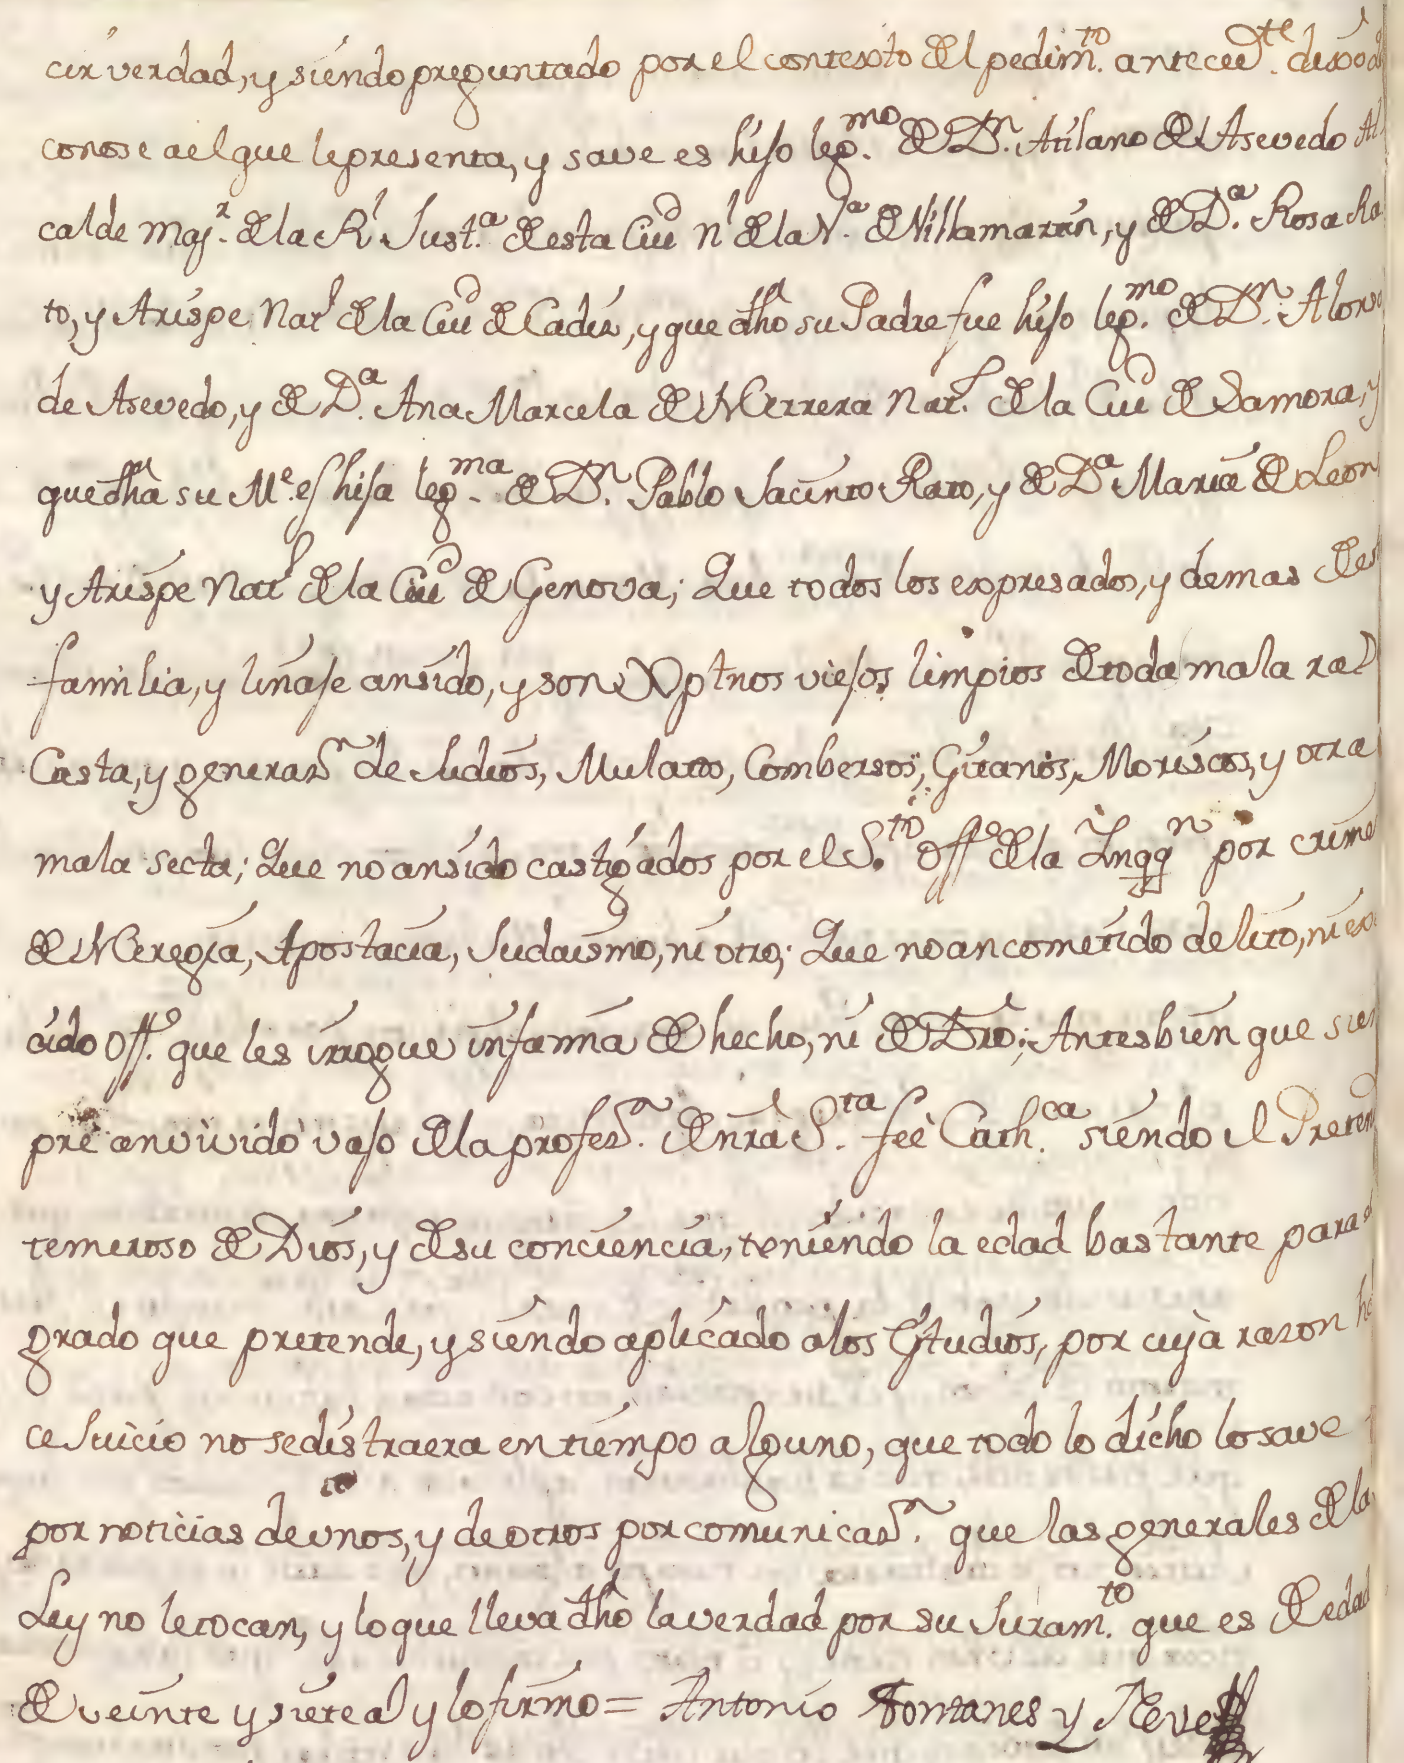 cir verdad, y siendo preguntado por el contexto del pedim.to anteced.te dixo q
conose ael que lepresenta, y save es hijo leg.mo de D.n Atilano de Asevedo Al
calde may.r de la R.l Just.a de esta Ciud n.l de la V.a de Villamartin, y de D.a Rosa Ra
to, y Arispe Nat.l de la Ciud de Cadiz, y que dho su Padre fue hijo leg.mo de D.n Alonso
de Asevedo, y de D.a Ana Marcela de Herrera Nat.s de la Ciud de Samora, y
que dha su M.e es hija leg.ma de D.n Pablo Jacinto Rato, y de D.a Maria de Leon
y Arispe Nat.s de la Ciud de Genova; Que todos los expresados, y demas de es
familia, y linaje ansido, y son Xptnos viejos limpios de toda mala ra
Casta, y generaz.n de Judios, Mulatos, Combersos, Gitanos, Moriscos, y otra
mala secta; Que no ansido castigados por el S.to Off.o de la Inqq.n por crime
de Heregia, Apostacia, Judaismo, ni otro; Que no an cometido delito, ni ex
cido Off.o que les irrogue infamia de hecho, ni de Dro; Antes bien que siem
pre an vivido vajo de la profez.n de nra S.ta feè Cath.ca siendo el Preten
temeroso de Dios, y de su conciencia, teniendo la edad bastante para
grado que pretende, y siendo aplicado alos Estudios, por cuya razon
ce Juicio no sedistraera en tiempo alguno, que todo lo dicho lo save
por noticias de unos, y de otros por comunicaz.n que las generales de la
Ley no letocan, y lo que lleva dho la verdad por su Juram.to que es de edad
de veinte y siete a.s y lo firmo = Antonio Fontanes y Neve